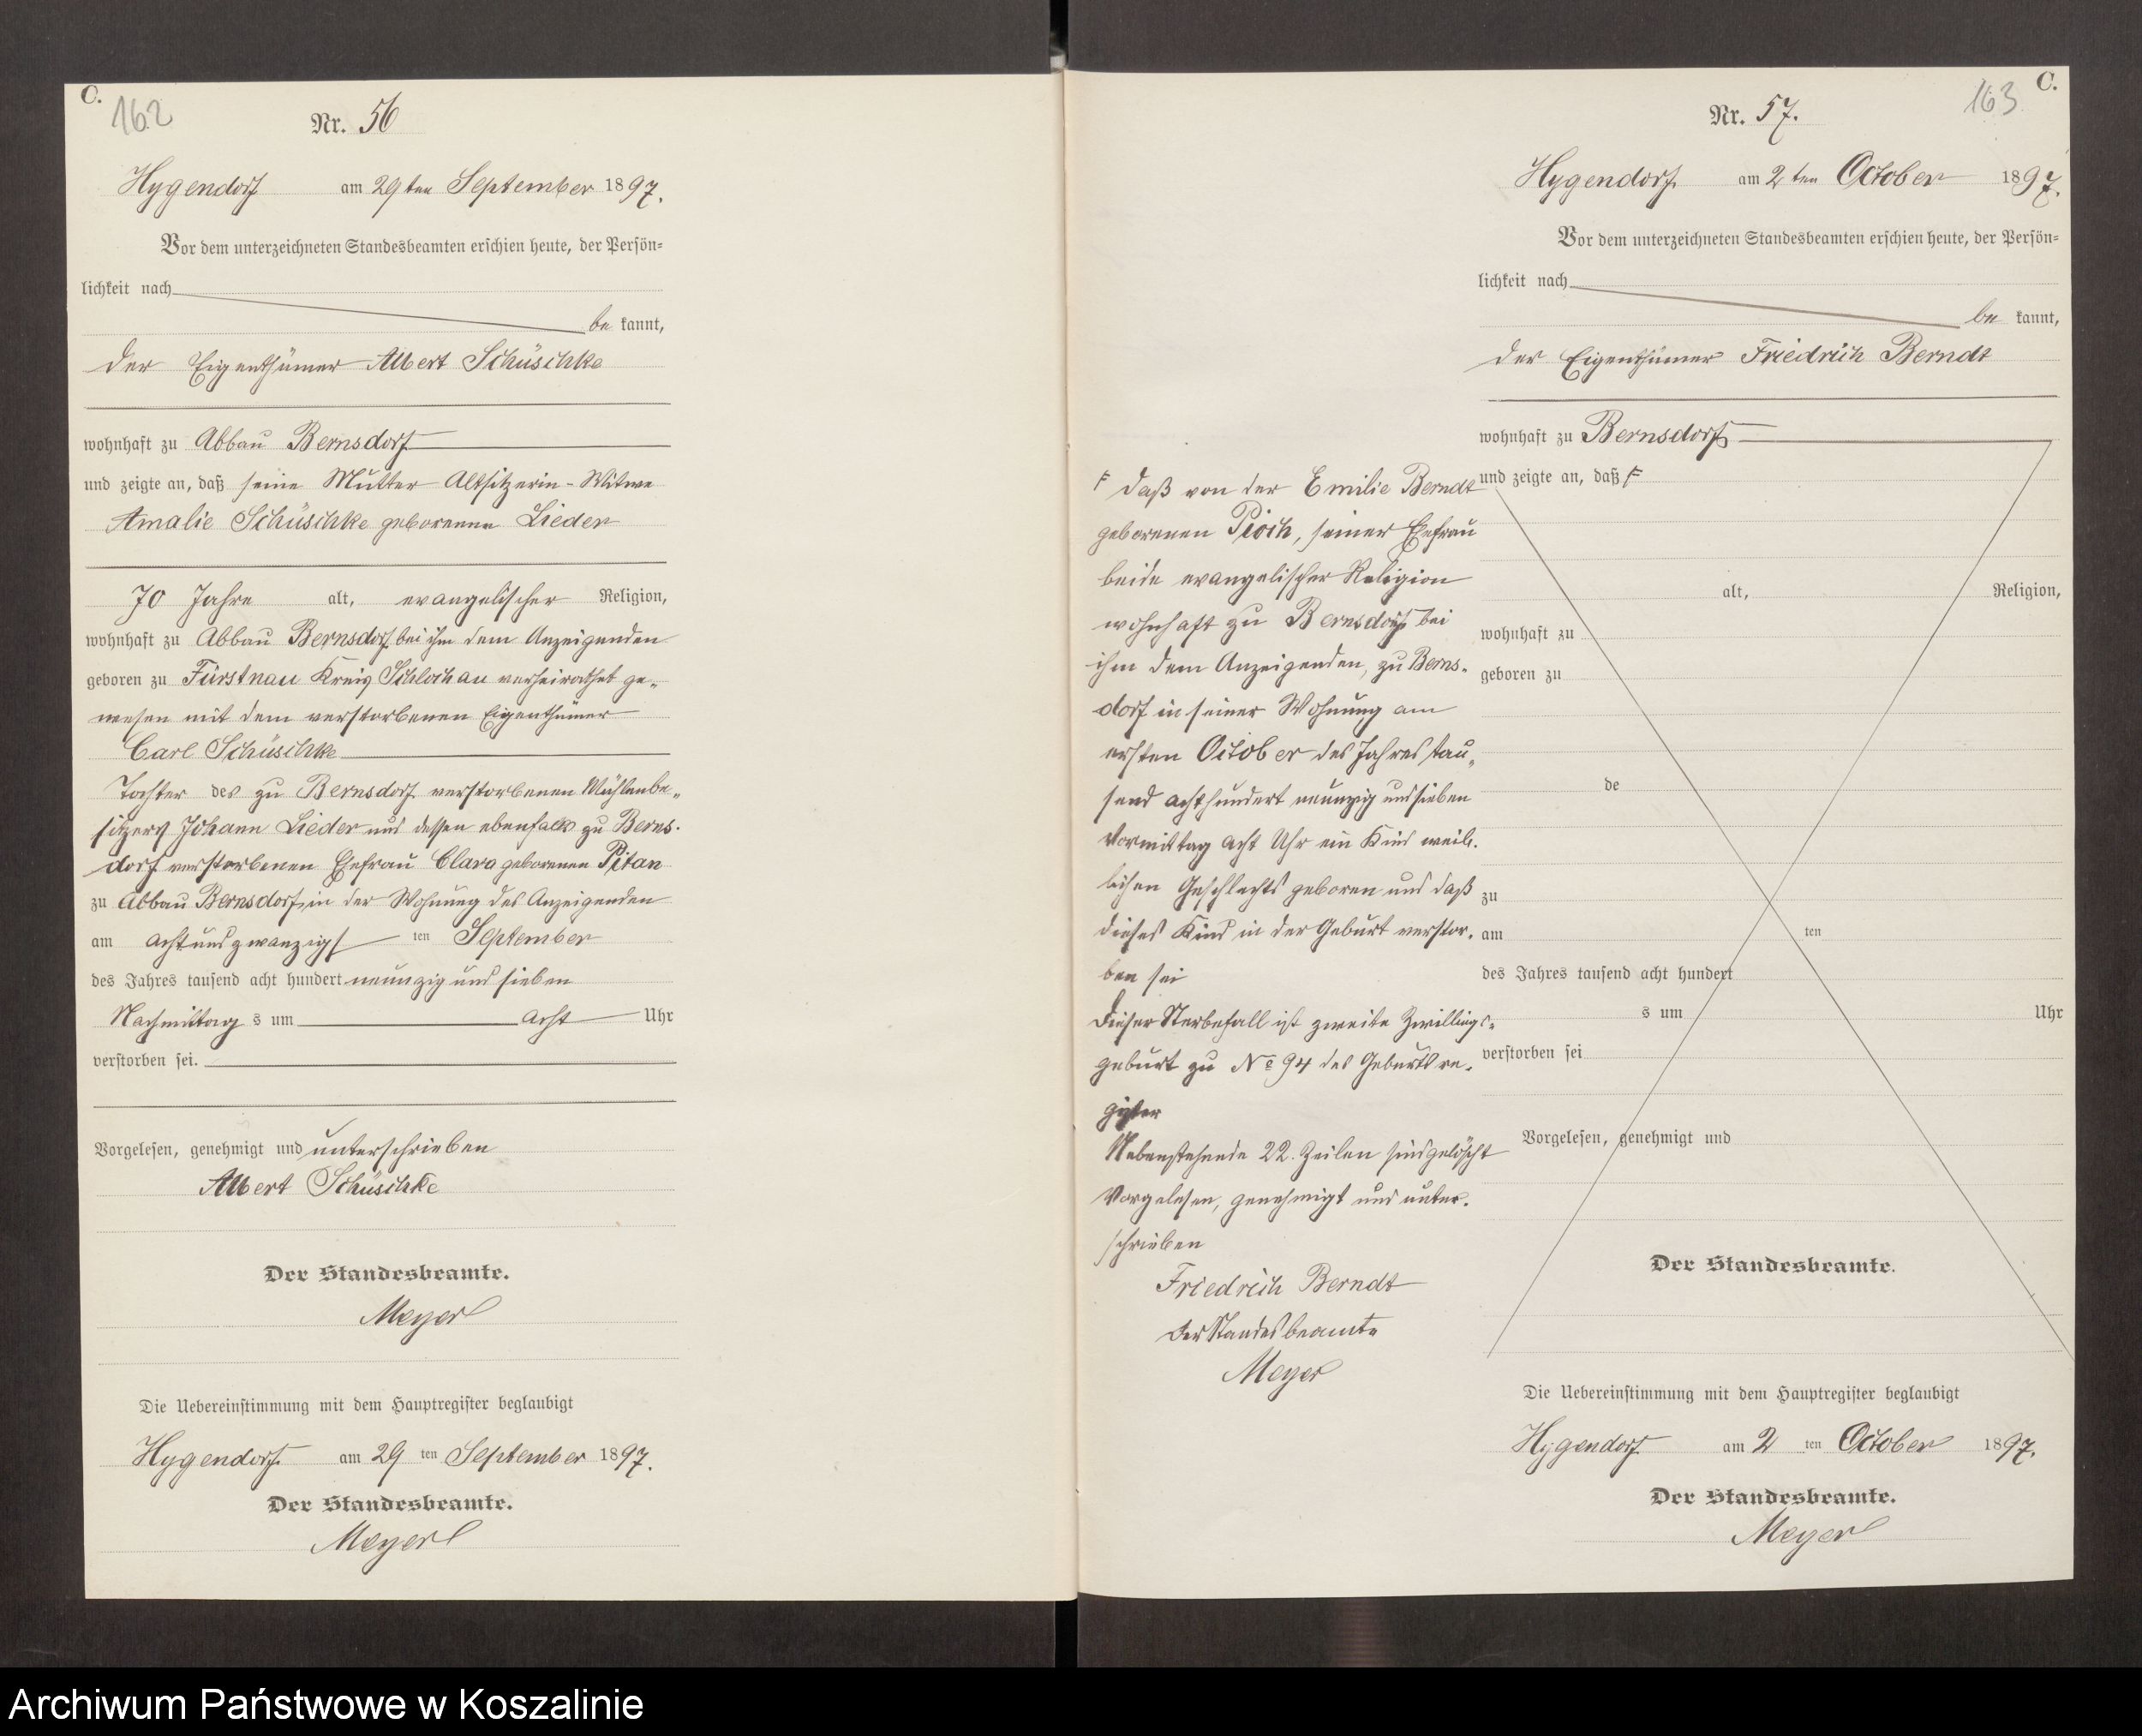 C.
162
Nr. 56
Hygendorf am 29ten September 1897.
Vor dem unterzeichneten Standesbeamten erschien heute, der Persön=
lichkeit nach
be kannt,
der Eigenthümer Albert Schüschke
wohnhaft zu Abbau Bernsdorf
und zeigte an, daß seine Mutter Altsitzerin-Witwe
Amalie Schüschke geborenen Lieder
70 Jahre alt, evangelischer Religion,
wohnhaft zu Abbau Bernsdorf bei ihm dem Anzeigenden
geboren zu Fürstnau Kreis Schlochau verheirathet ge-
wesen mit dem verstorbenen Eigenthümer
Carl Schüschke
Tochter des zu Bernsdorf verstorbenen Mühlenbe-
sitzers Johann Lieder und dessen ebenfalls zu Berns-
dorf verstorbenen Ehefrau Clara geborenen Pitan
zu Abbau Bernsdorf, in der Wohnung des Anzeigenden
am achtundzwanzigsten September
des Jahres tausend acht hundert neunzig und sieben
Nachmittag s um acht Uhr
verstorben sei.
Vorgelesen, genehmigt und unterschrieben
Albert Schüschke
Der Standesbeamte.
Meyer
Die Uebereinstimmung mit dem Hauptregister beglaubigt
Hygendorf. am 29 ten September 1897.
Der Standesbeamte.
Meyer
C.
163
Nr. 57.
Hygendorf. am 2 ten October 1897.
Vor dem unterzeichneten Standesbeamten erschien heute, der Persön=
lichkeit nach
be kannt,
der Eigenthümer Friedrich Berndt
wohnhaft zu Bernsdorf
und zeigte an, daß F
alt, Religion,
wohnhaft zu
geboren zu
de
zu
am ten
des Jahres tausend acht hundert
s um Uhr
verstorben sei
Vorgelesen, genehmigt und
Der Standesbeamte.
F daß von der Emilie Berndt
geborenen Pioch, seiner Ehefrau
beide evangelischer Religion
wohnhaft zu Bernsdorf bei
ihm dem Anzeigenden, zu Berns-
dorf in seiner Wohnung am
ersten October des Jahres tau-
send achthundert neunzig und sieben
Vormittag acht Uhr ein Kind weib-
lichen Geschlechts geboren und daß
dieses Kind in der Geburt verstor-
ben sei
Dieser Sterbefall ist zweite Zwillings-
geburt zu No 94 des Geburtsre-
gister
Nebenstehende 22. Zeilen sind gelöscht
Vorgelesen, genehmigt und unter-
schrieben
Friedrich Berndt
Der Standesbeamte
Meyer
Die Uebereinstimmung mit dem Hauptregister beglaubigt
Hygendorf am 2 ten October 1897.
Der Standesbeamte.
Meyer
Archiwum Państwowe w Koszalinie